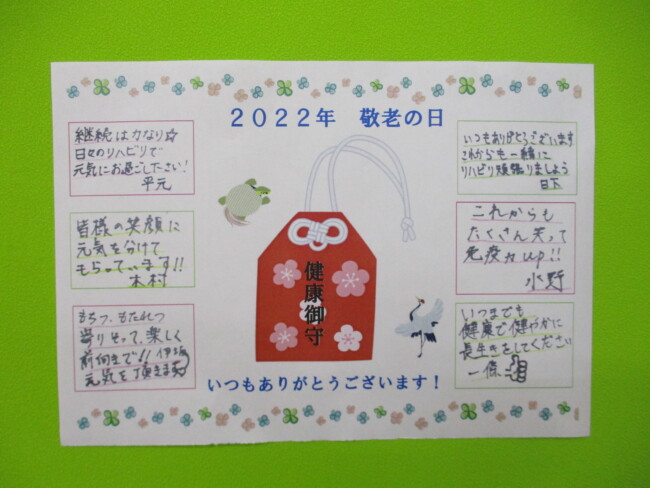 2022年 敬老の日
継続は力なり☆
日々のリハビリで
元気にお過ごし下さい！
平元
皆様の笑顔に
元気を分けて
もらっています!!
木村
もちつ、もたれつ
寄りそって、楽しく
前向きで!! 伊坂
元気を頂きます
健康御守
いつもありがとうございます
これからも一緒に
リハビリ頑張りましょう
日下
これからも
たくさん笑って
免疫力up!!
水野
いつまでも
健康で健やかに
長生きをしてください
一條
いつもありがとうございます！